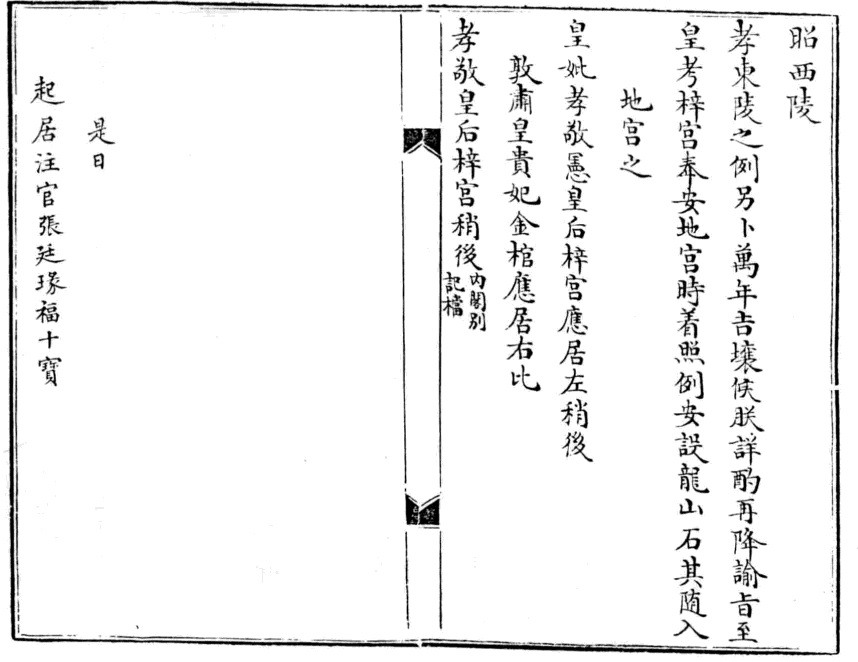 昭西陵
孝東陵之例另卜萬年吉壤俟朕詳酌再降諭旨至
皇考梓宮奉安地宮時着照例安設龍山石其随入
地宮之
皇妣孝敬憲皇后梓宮應居左稍後
敦肅皇貴妃金棺應居右比
孝敬皇后梓宮稍後內閣别
記檔
是日
起居注官張廷瑑福十寶